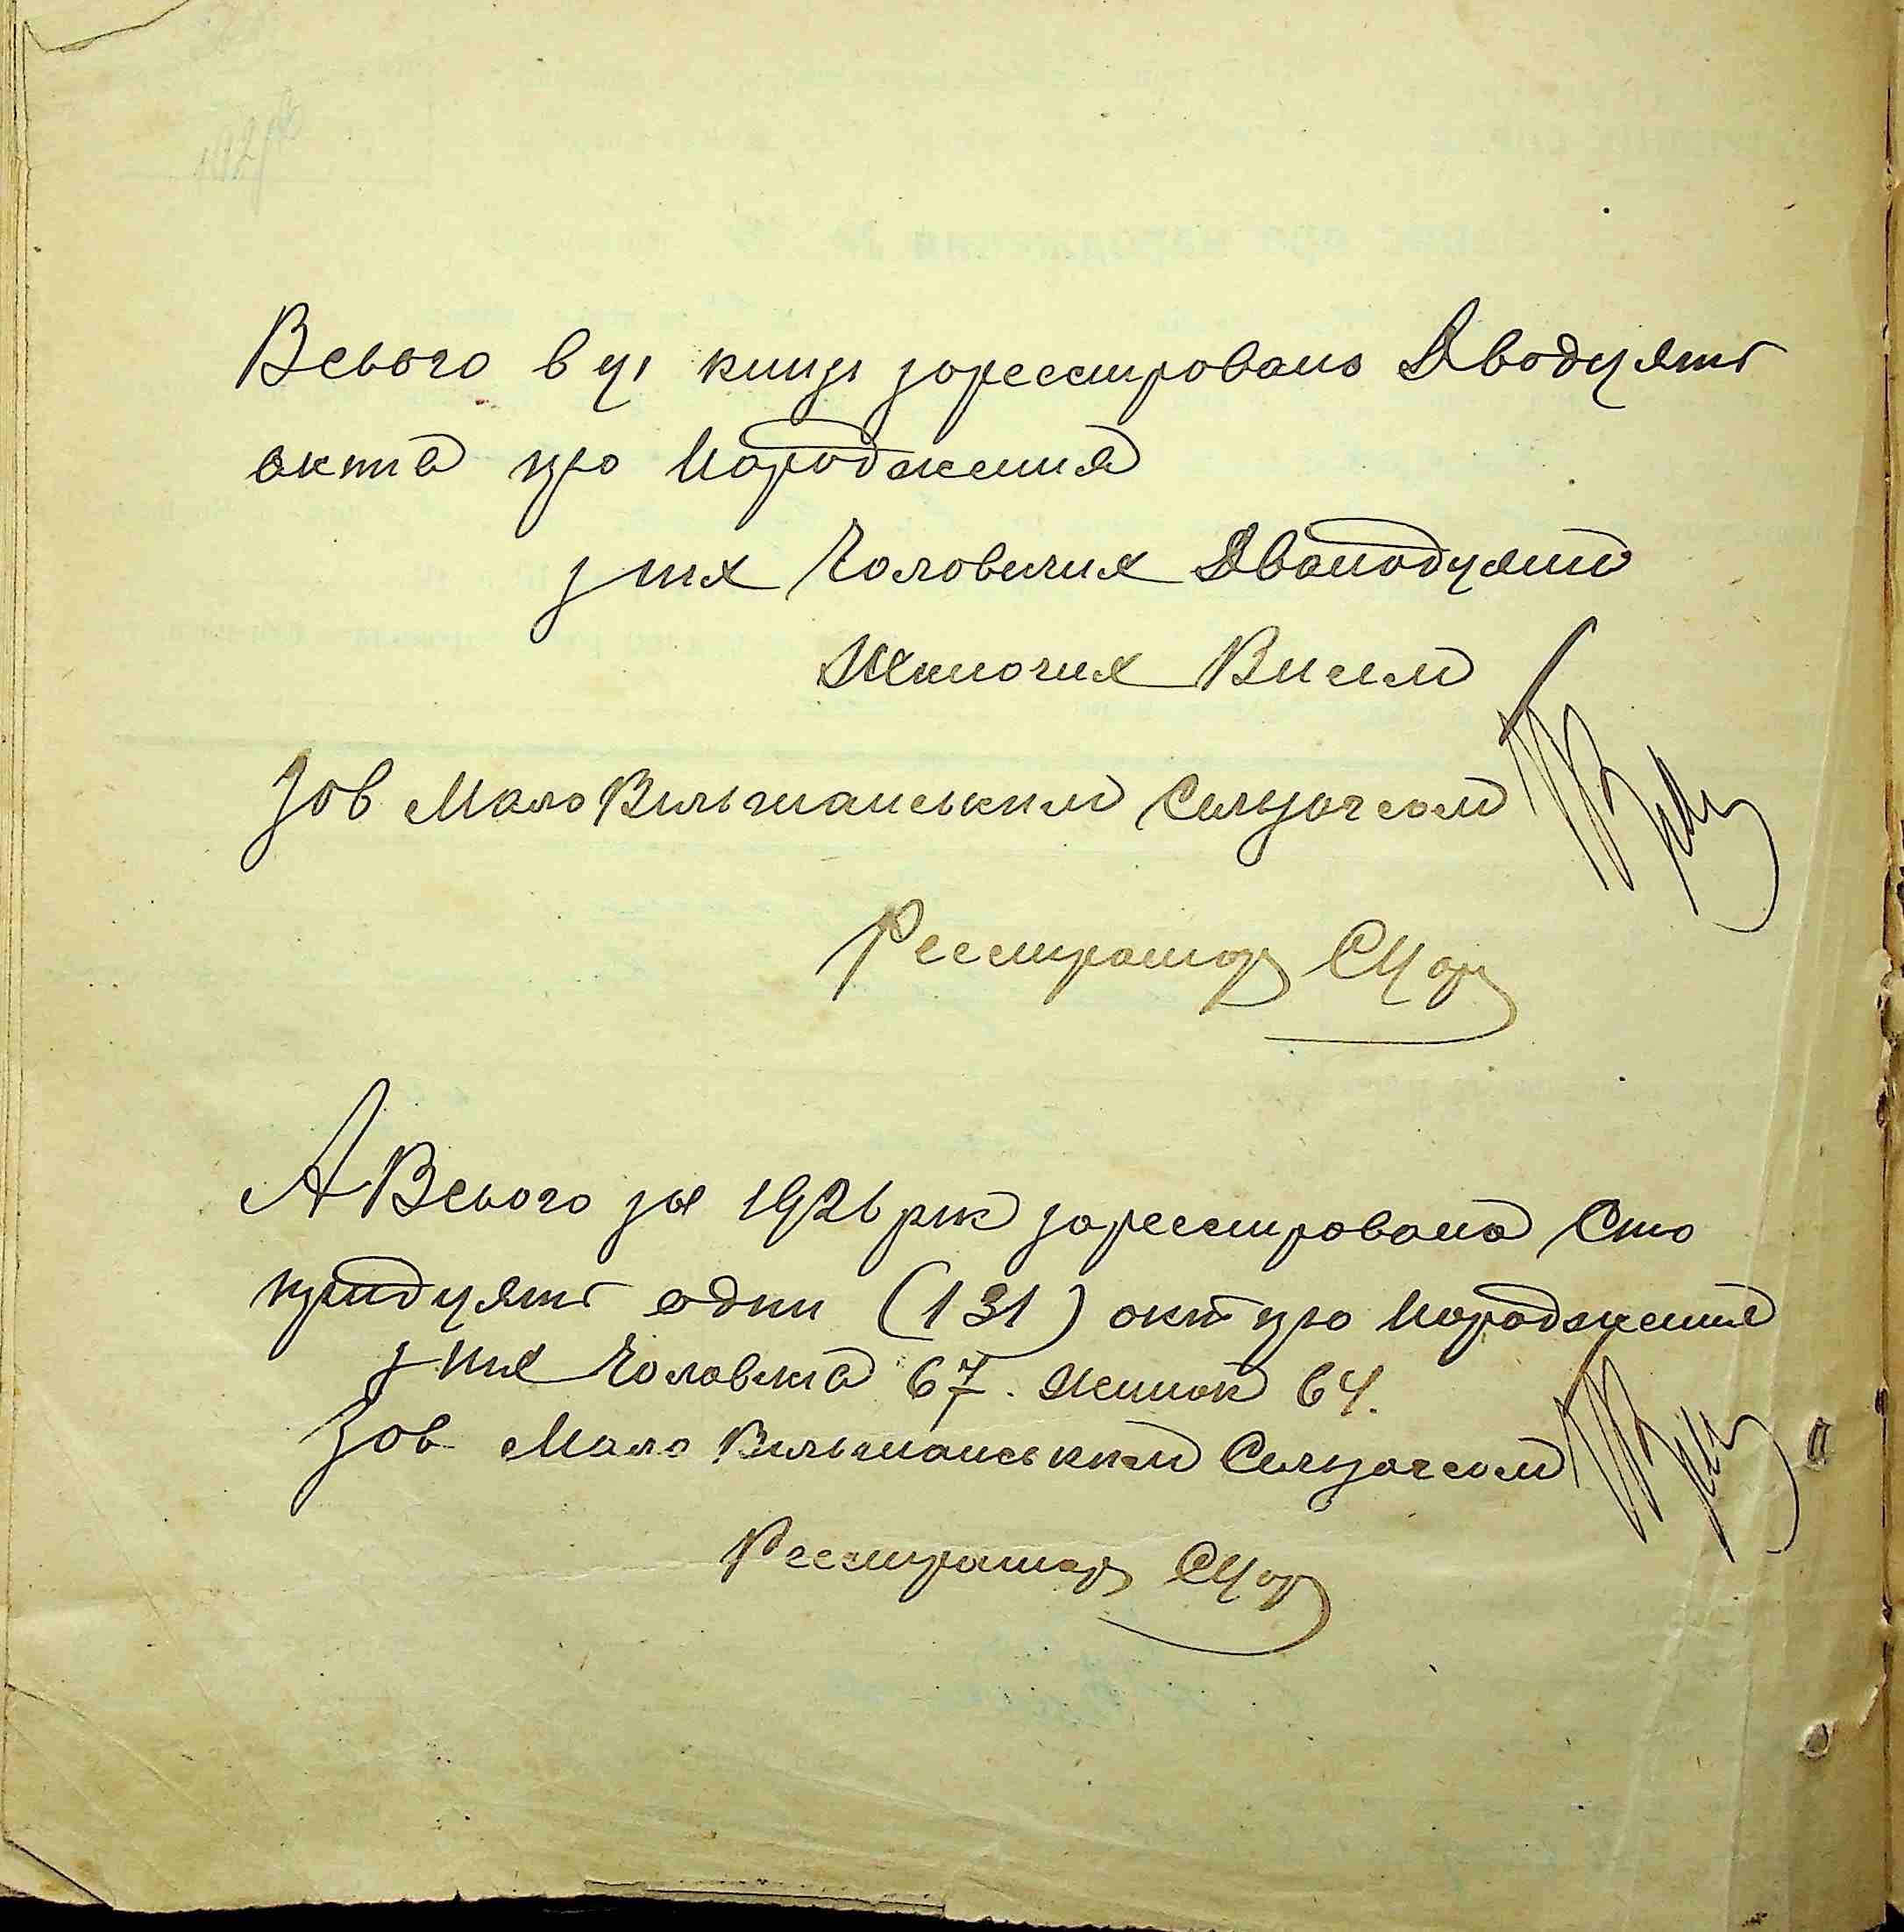 Всього в ці книзі зареєстровано Двадцять
акта про Народження
з них Чоловичих Дванадцять
Жиночих Висим
Зав Мало Вильшанським Силзагсом
Реєстратор
А Всього за 1926 рик зареєстровано Сто
тридцять один (131) акт про Народження
з них Чоловика 67. Жинок 64.
Зав Мало Вильшанським Силзагсом
Реєстратор